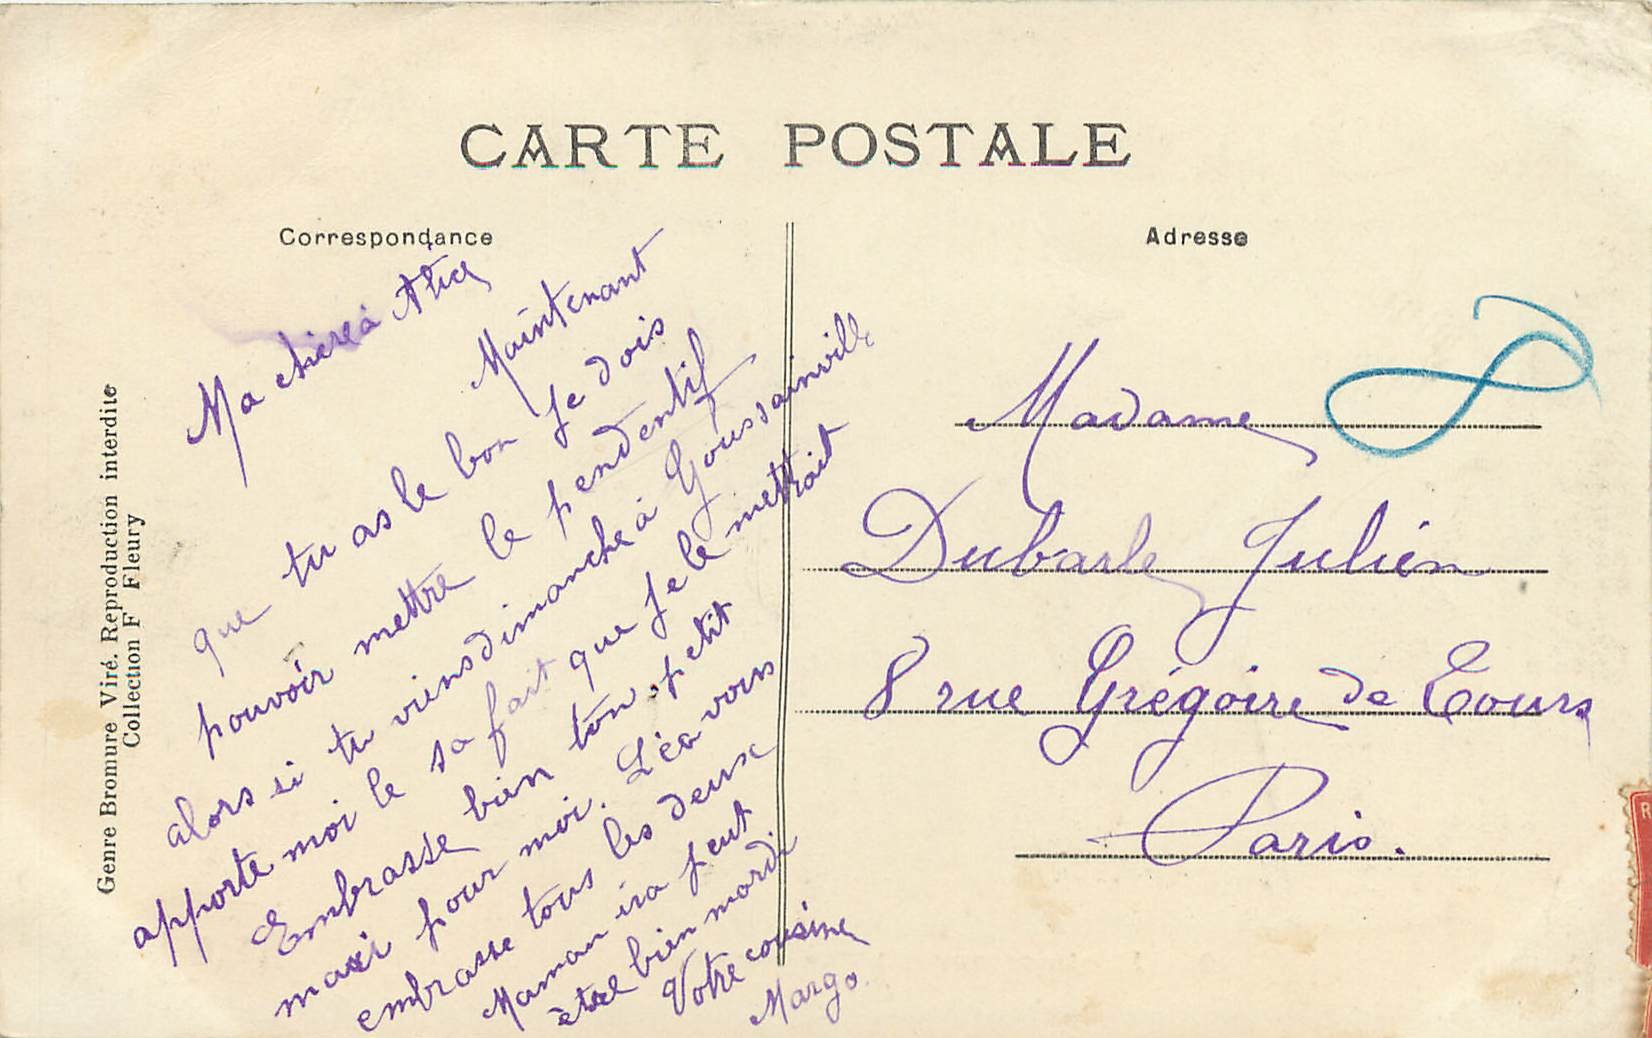 CARTE POSTALE
Correspondance
Adresse
Ma chère Alice
Maintenant
que tu as le bon Je dois
pouvoir mettre le pendentif
alors si tu viens dimanche à Goussainville
apporte moi le sa fait que Je le mettrait
Embrasse bien ton petit
mari pour moi. Léa vous
embrasse tous les deux
Maman ira peut
être bien mardi
Votre cousine
Margo.
Madame
Dubarle Julien
8 rue Grégoire de Tours
Paris.
Genre Bromure Viré. Reproduction interdite
Collection F Fleury
R